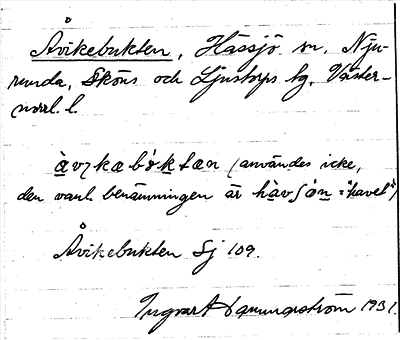 Åvikebukten, Hässjö sn. Nju-
runda, Sköns och Ljustorps tg, Väster-
norrl. l.
àvıkabök tan (användes icke,
den vanl. benämningen är hàvʃòn = "havet")
Åvikebukten Sj 109.
Ingvart 1931.